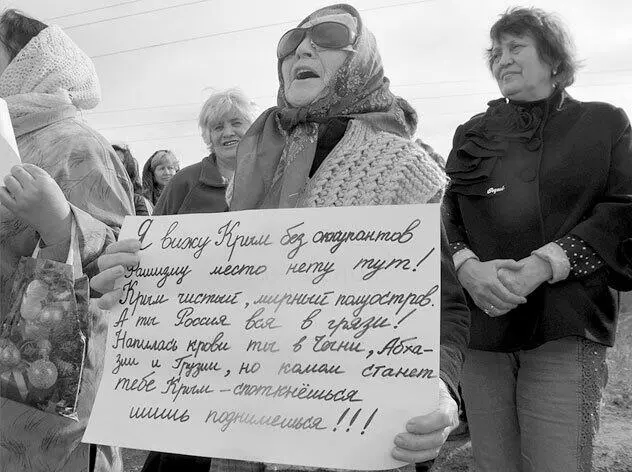 Я вижу Крым без оккупантов
Фашизму место нету тут!
Крым чистый, мирный полуостров.
А ты Россия вся в грязи!
Напилась крови ты в Чечни, Абха-
зии и Грузии, но комом станет
тебе Крым – споткнёшься
лишь поднимешься!!!